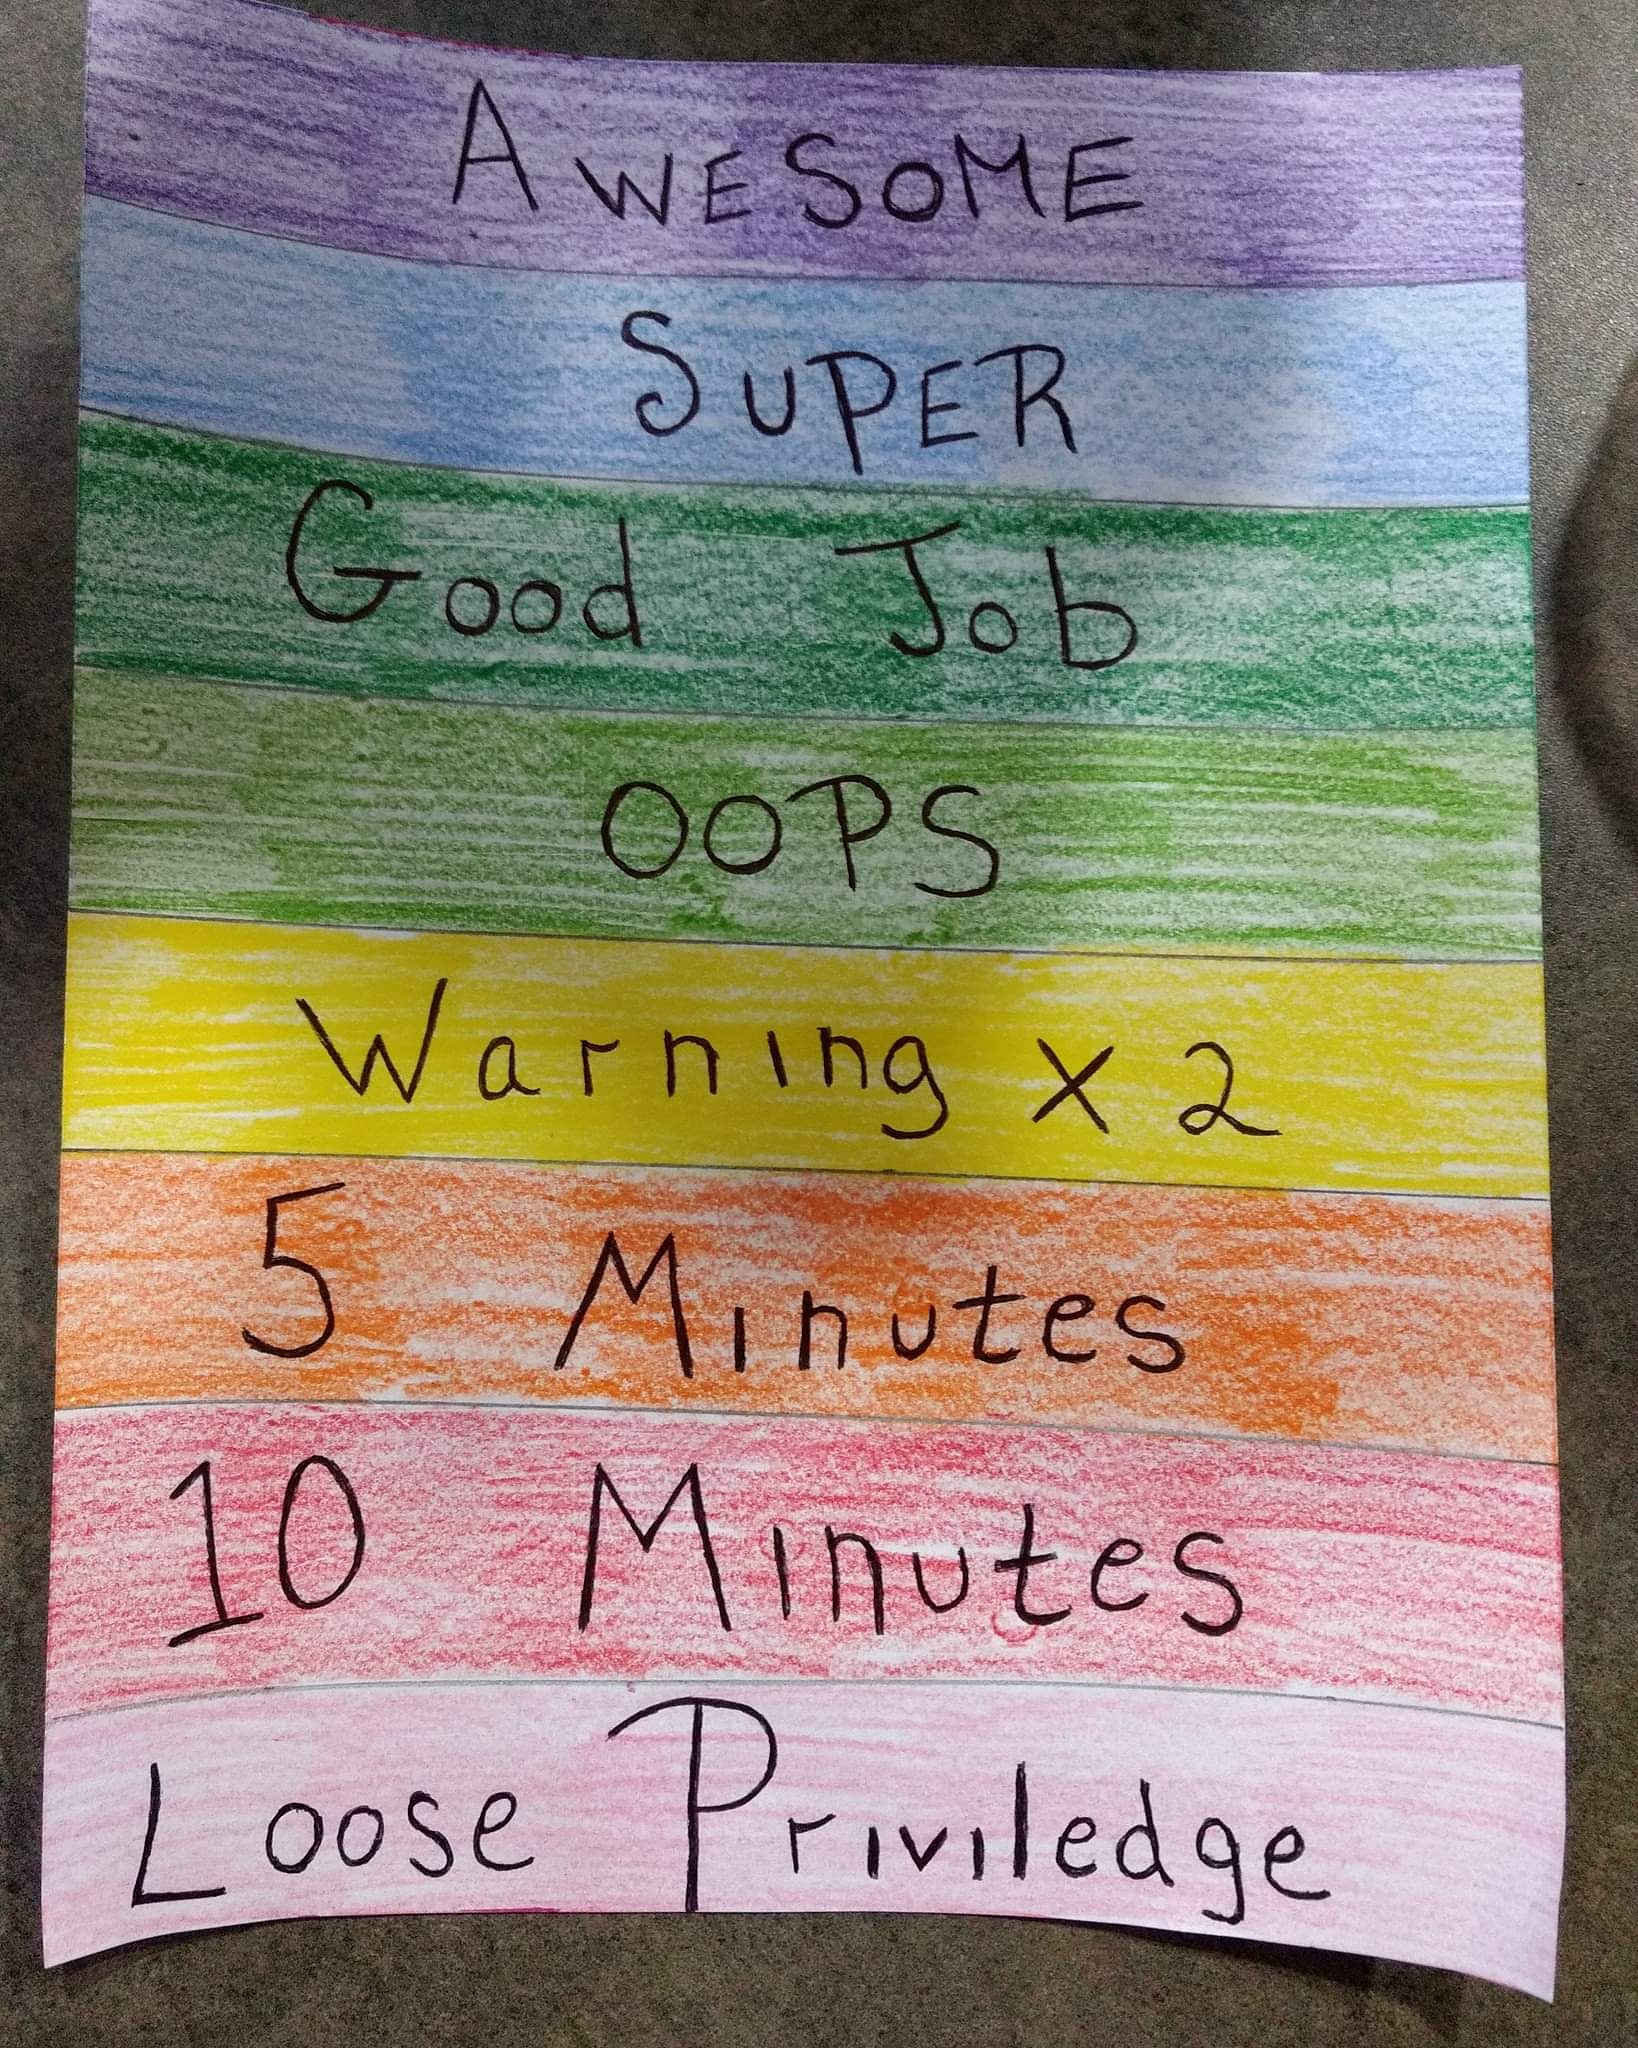 AWESOME
SUPER
Good Job
OOPS
Warning x 2
5 Minutes
10 Minutes
Loose Priviledge